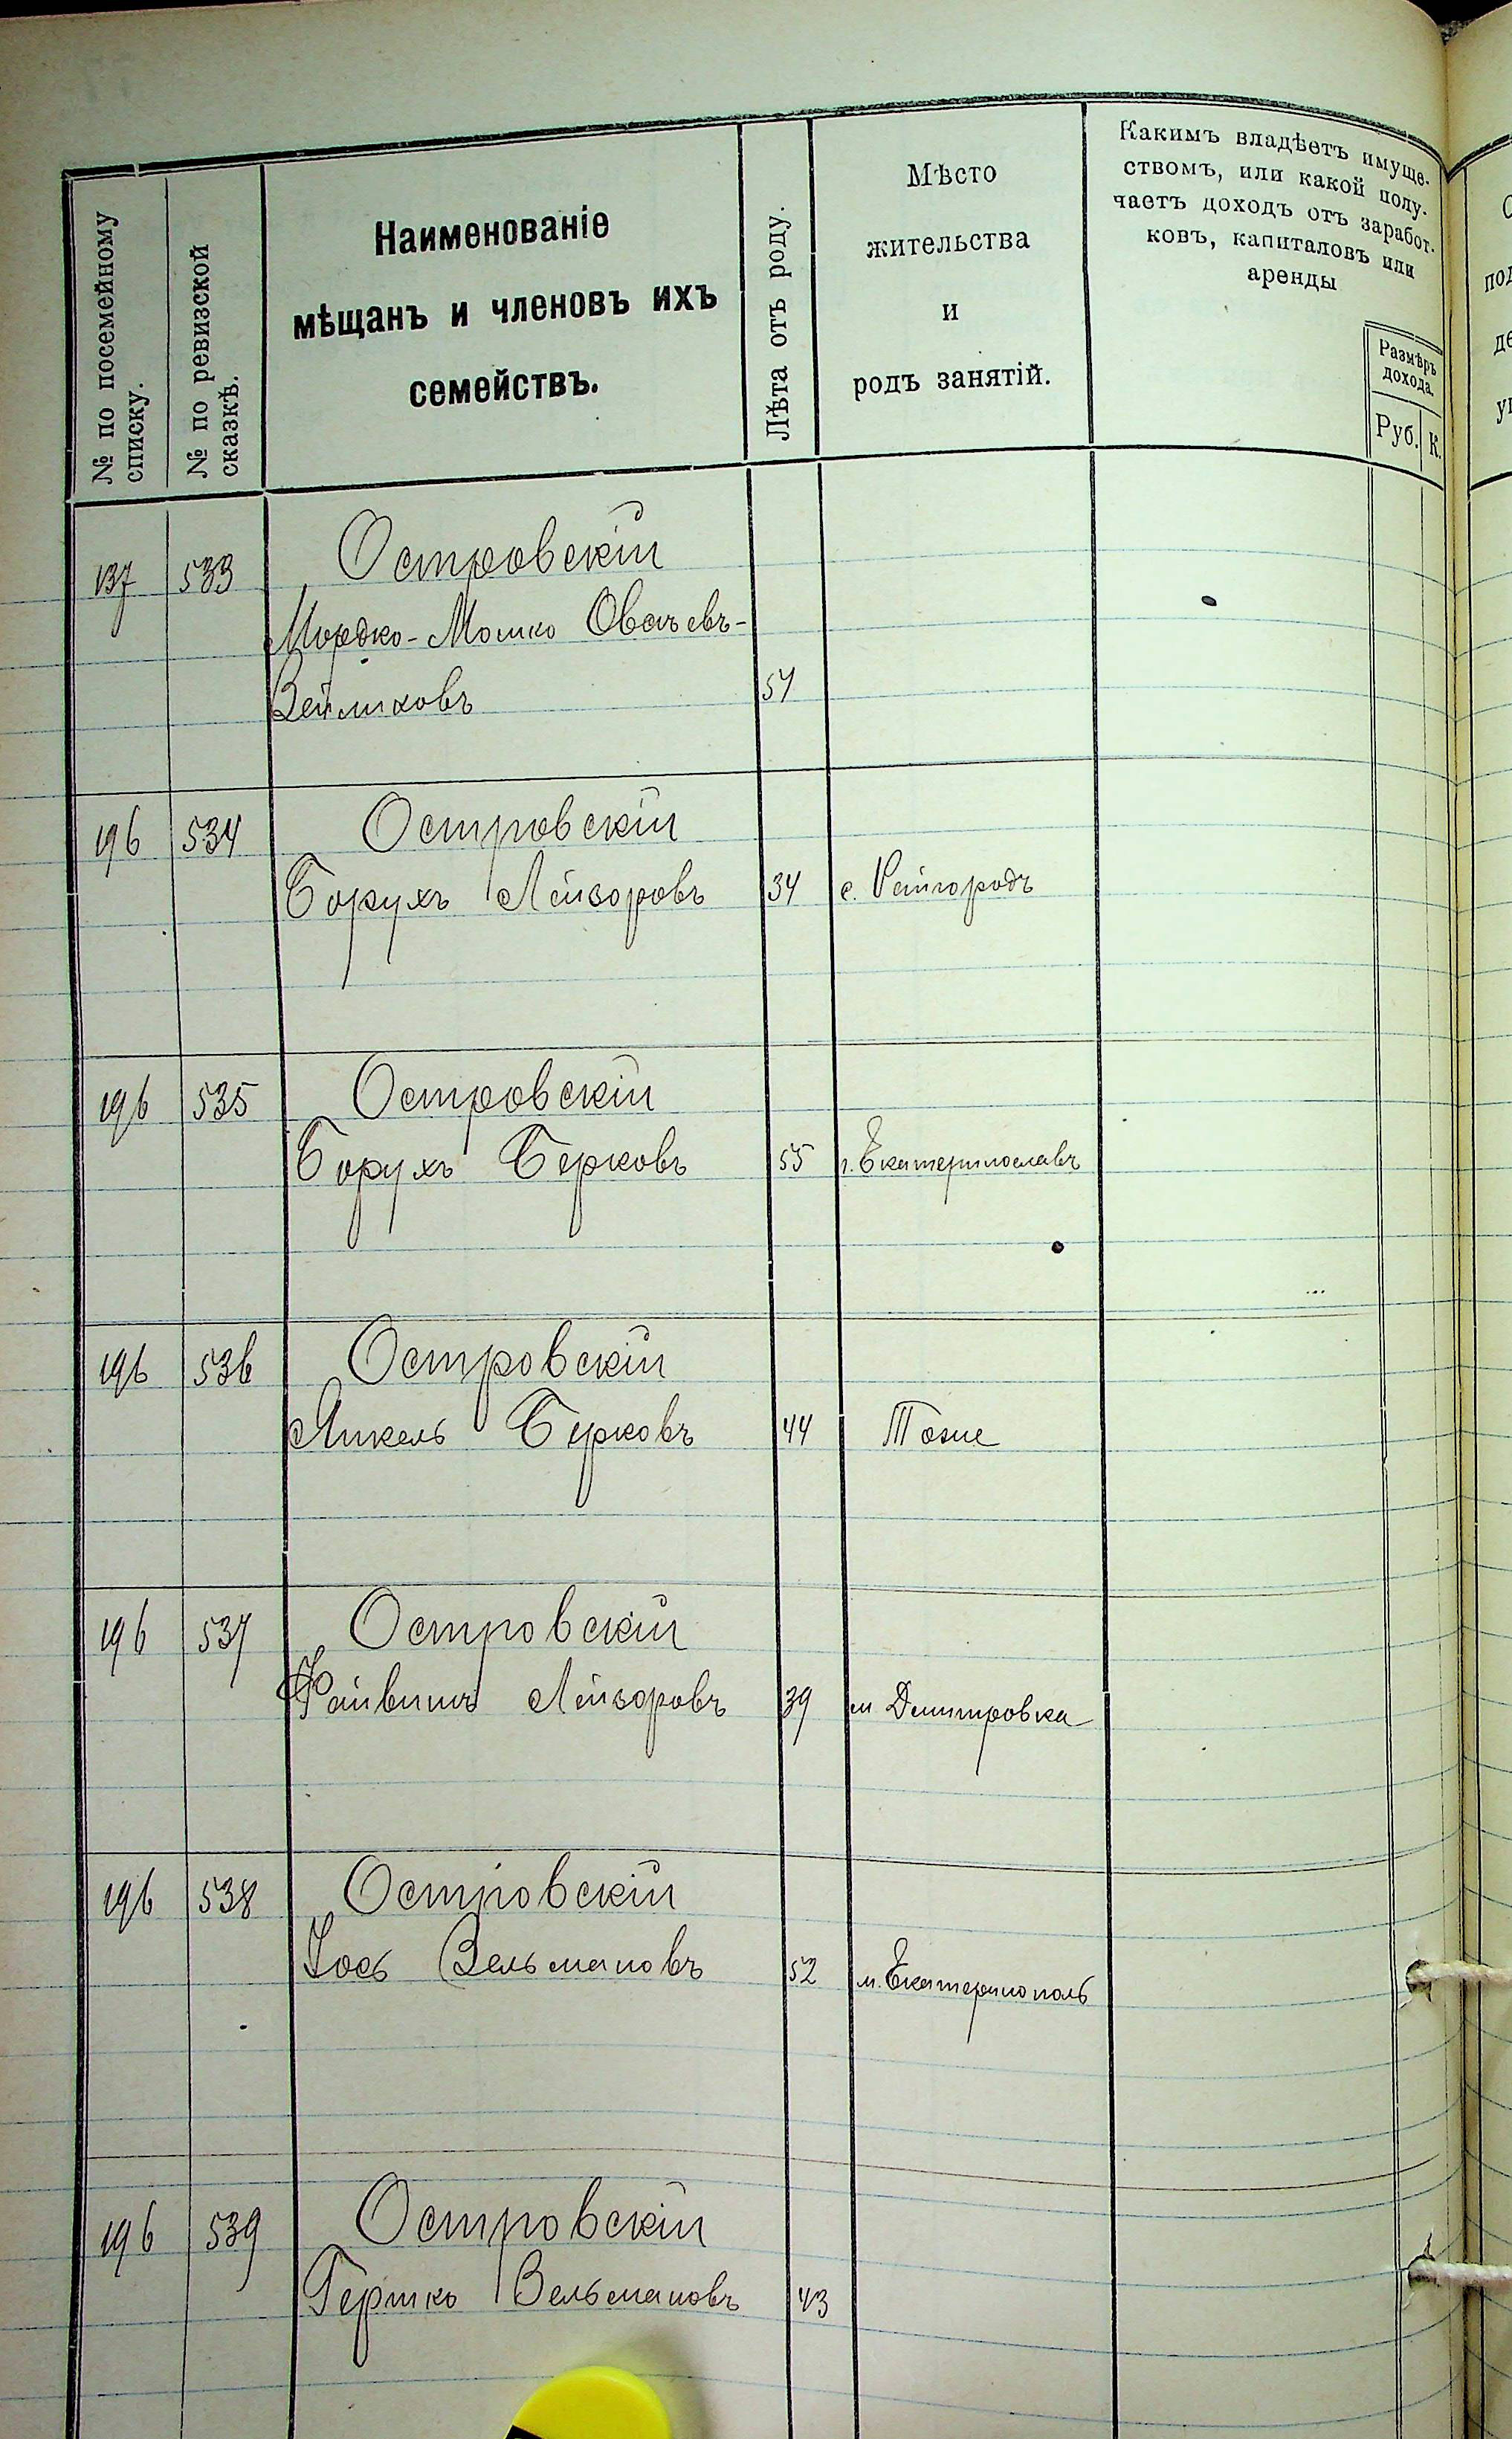 № по посемейному
списку.
№ по ревизской
сказкѣ.
Наименованіе
мѣщанъ и членовъ ихъ
семействъ.
Лѣта отъ роду.
Мѣсто
жительства
и
родъ занятій.
Какимъ владѣетъ имуще-
ствомъ, или какой полу-
чаетъ доходъ отъ заработ-
ковъ, капиталовъ или
аренды
Размѣръ
дохода.
Руб. К.
137 533 Островскій
Мордко-Мошко Овсѣевъ-
Зейликовъ 54
196 534 Островскій
Борухъ Лейзоровъ 34 с. Райгородъ
196 535 Островскій
Борухъ Берковъ 55 г. Екатеринославъ
196 536 Островскій
Янкель Берковъ 44 Тоже
196 537 Островскій
Файвишъ Лейзоровъ 39 м Дмитровка
196 538 Островскій
Іось Зельмановъ 52 м. Екатеринополь
196 539 Островскій
Гершко Зельмановъ 43